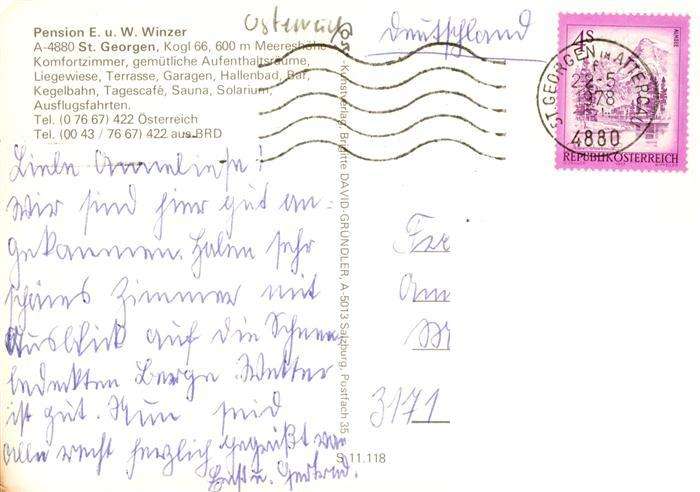 Pension E. u. W. Winzer
A-4880 St. Georgen, Kogl 66, 600 m Meereshöhe
Komfortzimmer, gemütliche Aufenthaltsräume,
Liegewiese, Terrasse, Garagen, Hallenbad, Bar,
Kegelbahn, Tagescafé, Sauna, Solarium,
Ausflugsfahrten.
Tel. (0 76 67) 422 Österreich
Tel. (00 43 / 76 67) 422 aus BRD
Liebe Anneliese!
Wir sind hier gut an-
gekommen. Haben sehr
schönes Zimmer mit
Ausblick auf die Schnee
bedeckten Berge. Wetter
ist gut. Nun seid
alle recht herzlich gegrüßt von
u. Gertrud.
Kunstverlag Brigitte DAVID-GRÜNDLER, A-5013 Salzburg, Postfach 35
S 11.118
Österreich
Deutschland
4 S
ALMSEE
REPUBLIK ÖSTERREICH
ST. GEORGEN IM ATTERGAU
1978
4880
Am
3171